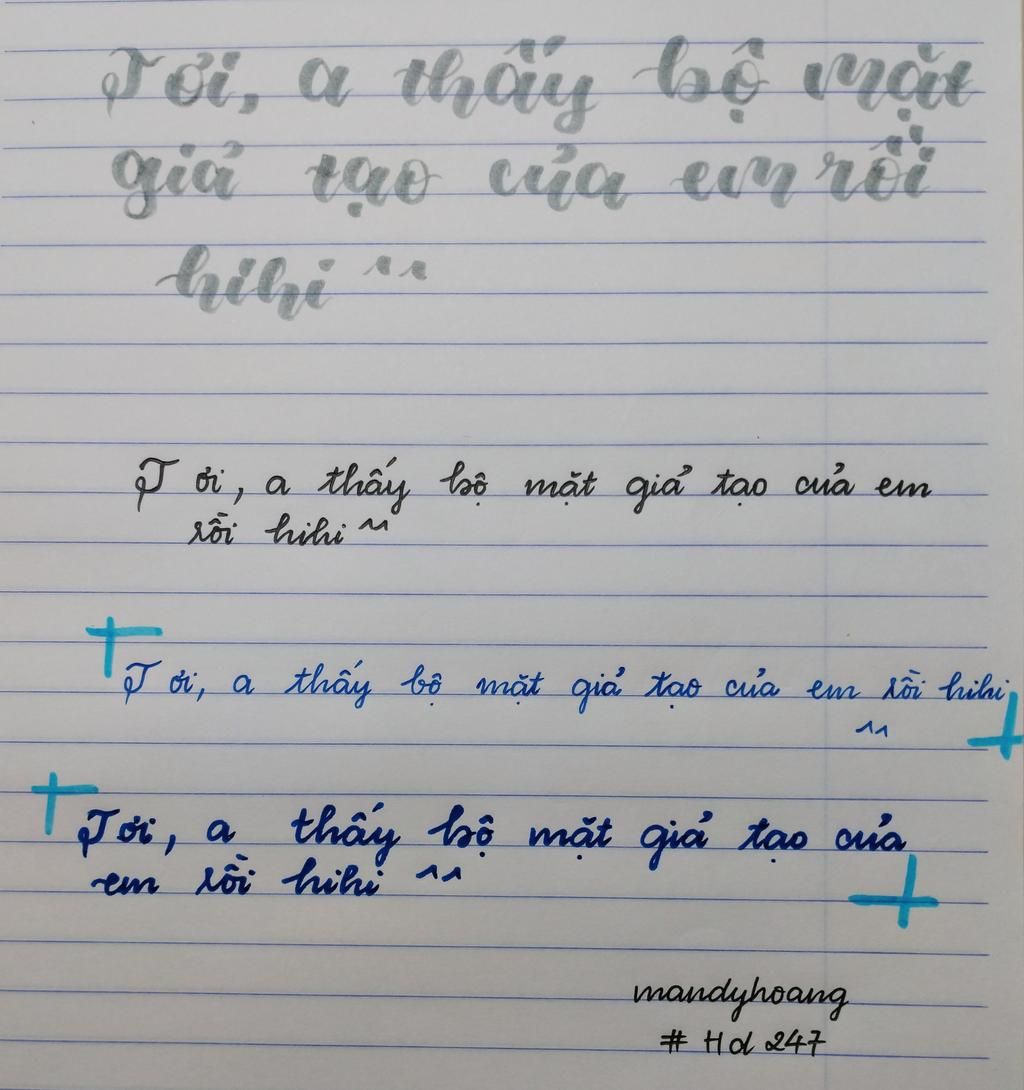 Tơi, a thấy bộ mặt
giả tạo của em rồi
hihi ^^
Tơi, a thấy bộ mặt giả tạo của em
rồi hihi ^^
Tơi, a thấy bộ mặt giả tạo của em rồi hihi
^^
Tơi, a thấy bộ mặt giả tạo của
em rồi hihi ^^
mandyhoang
# Hd 247